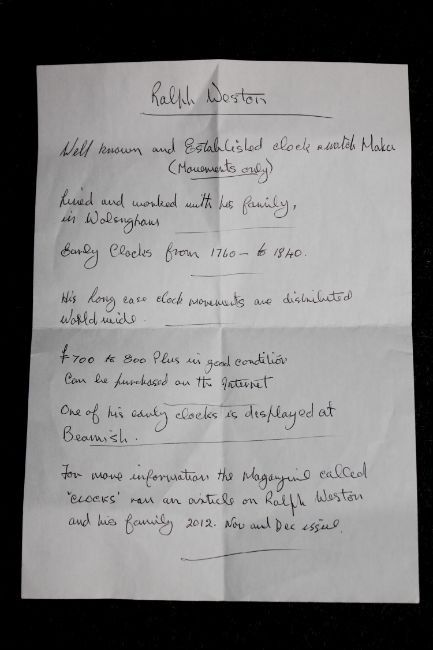 Ralph Weston
Well known and Established clock & watch Maker
(Movements only)
Lived and worked with his family,
in Wolsingham
Early Clocks from 1760 - to 1840.
His long case clock movements are distributed
world wide.
£700 to 800 Plus in good condition
Can be purchased on the Internet
One of his early clocks is displayed at
Beamish.
For more information the Magazine called
'CLOCKS' ran an article on Ralph Weston
and his family 2012. Nov and Dec issue.